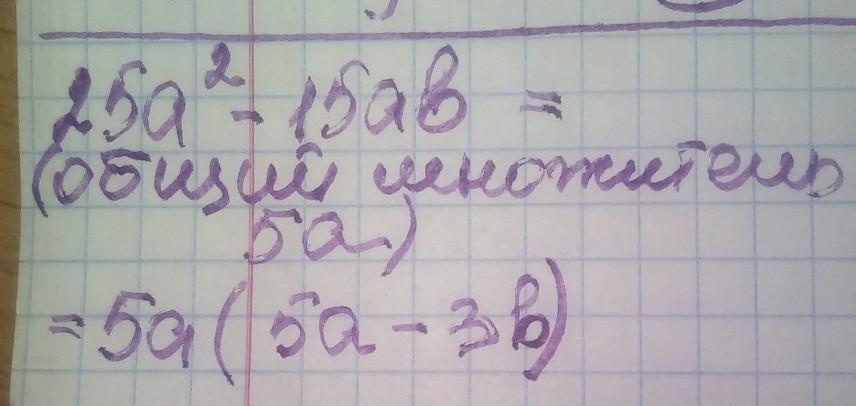 25a² - 15ab =
(общий множитель
5a)
= 5a(5a - 3b)